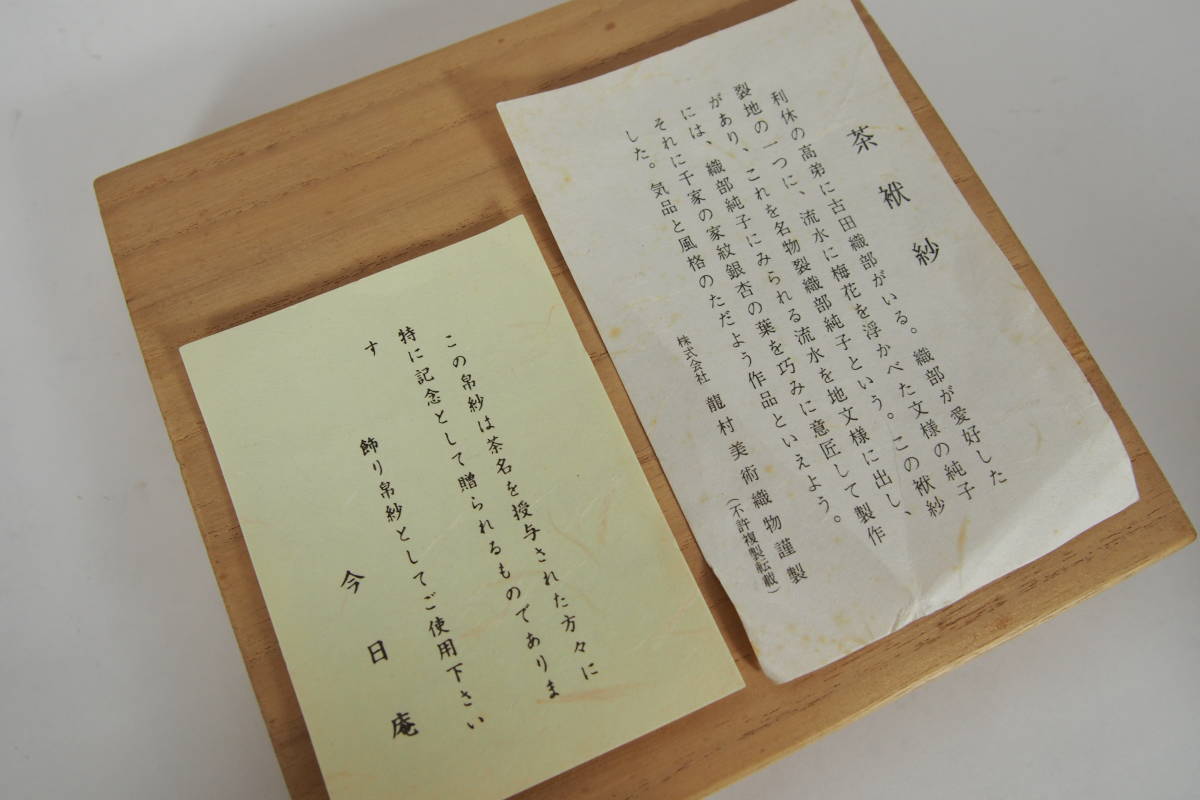 茶袱紗
利休の高弟に古田織部がいる。織部が愛好した
裂地の一つに、流水に梅花を浮かべた文様の純子
があり、これを名物裂織部純子という。この袱紗
には、織部純子にみられる流水を地文様に出し、
それに千家の家紋銀杏の葉を巧みに意匠して製作
した。気品と風格のただよう作品といえよう。
株式会社 龍村美術織物謹製
(不許複製転載)
この帛紗は茶名を授与された方々に
特に記念として贈られるものでありま
す 飾り帛紗としてご使用下さい
今日庵